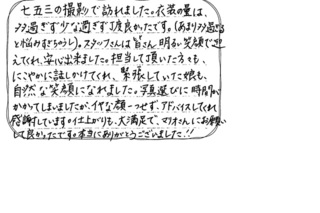 七五三の撮影で訪れました。衣装の量は、
多過ぎず少な過ぎず丁度良かったです。(あまり多過ぎる
と悩みすぎちゃうし)。スタッフさんは皆さん明るい笑顔で迎
えてくれ、安心出来ました。担当して頂いた方も、
にこやかに話しかけてくれ、緊張していた娘も、
自然な笑顔になれました。写真選びに時間が
かかってしまいましたが、イヤな顔一つせず、アドバイスしてくれ
感謝しています。仕上がりも、大満足で、マリオさんにお願い
して良かったです。本当にありがとうございました!!